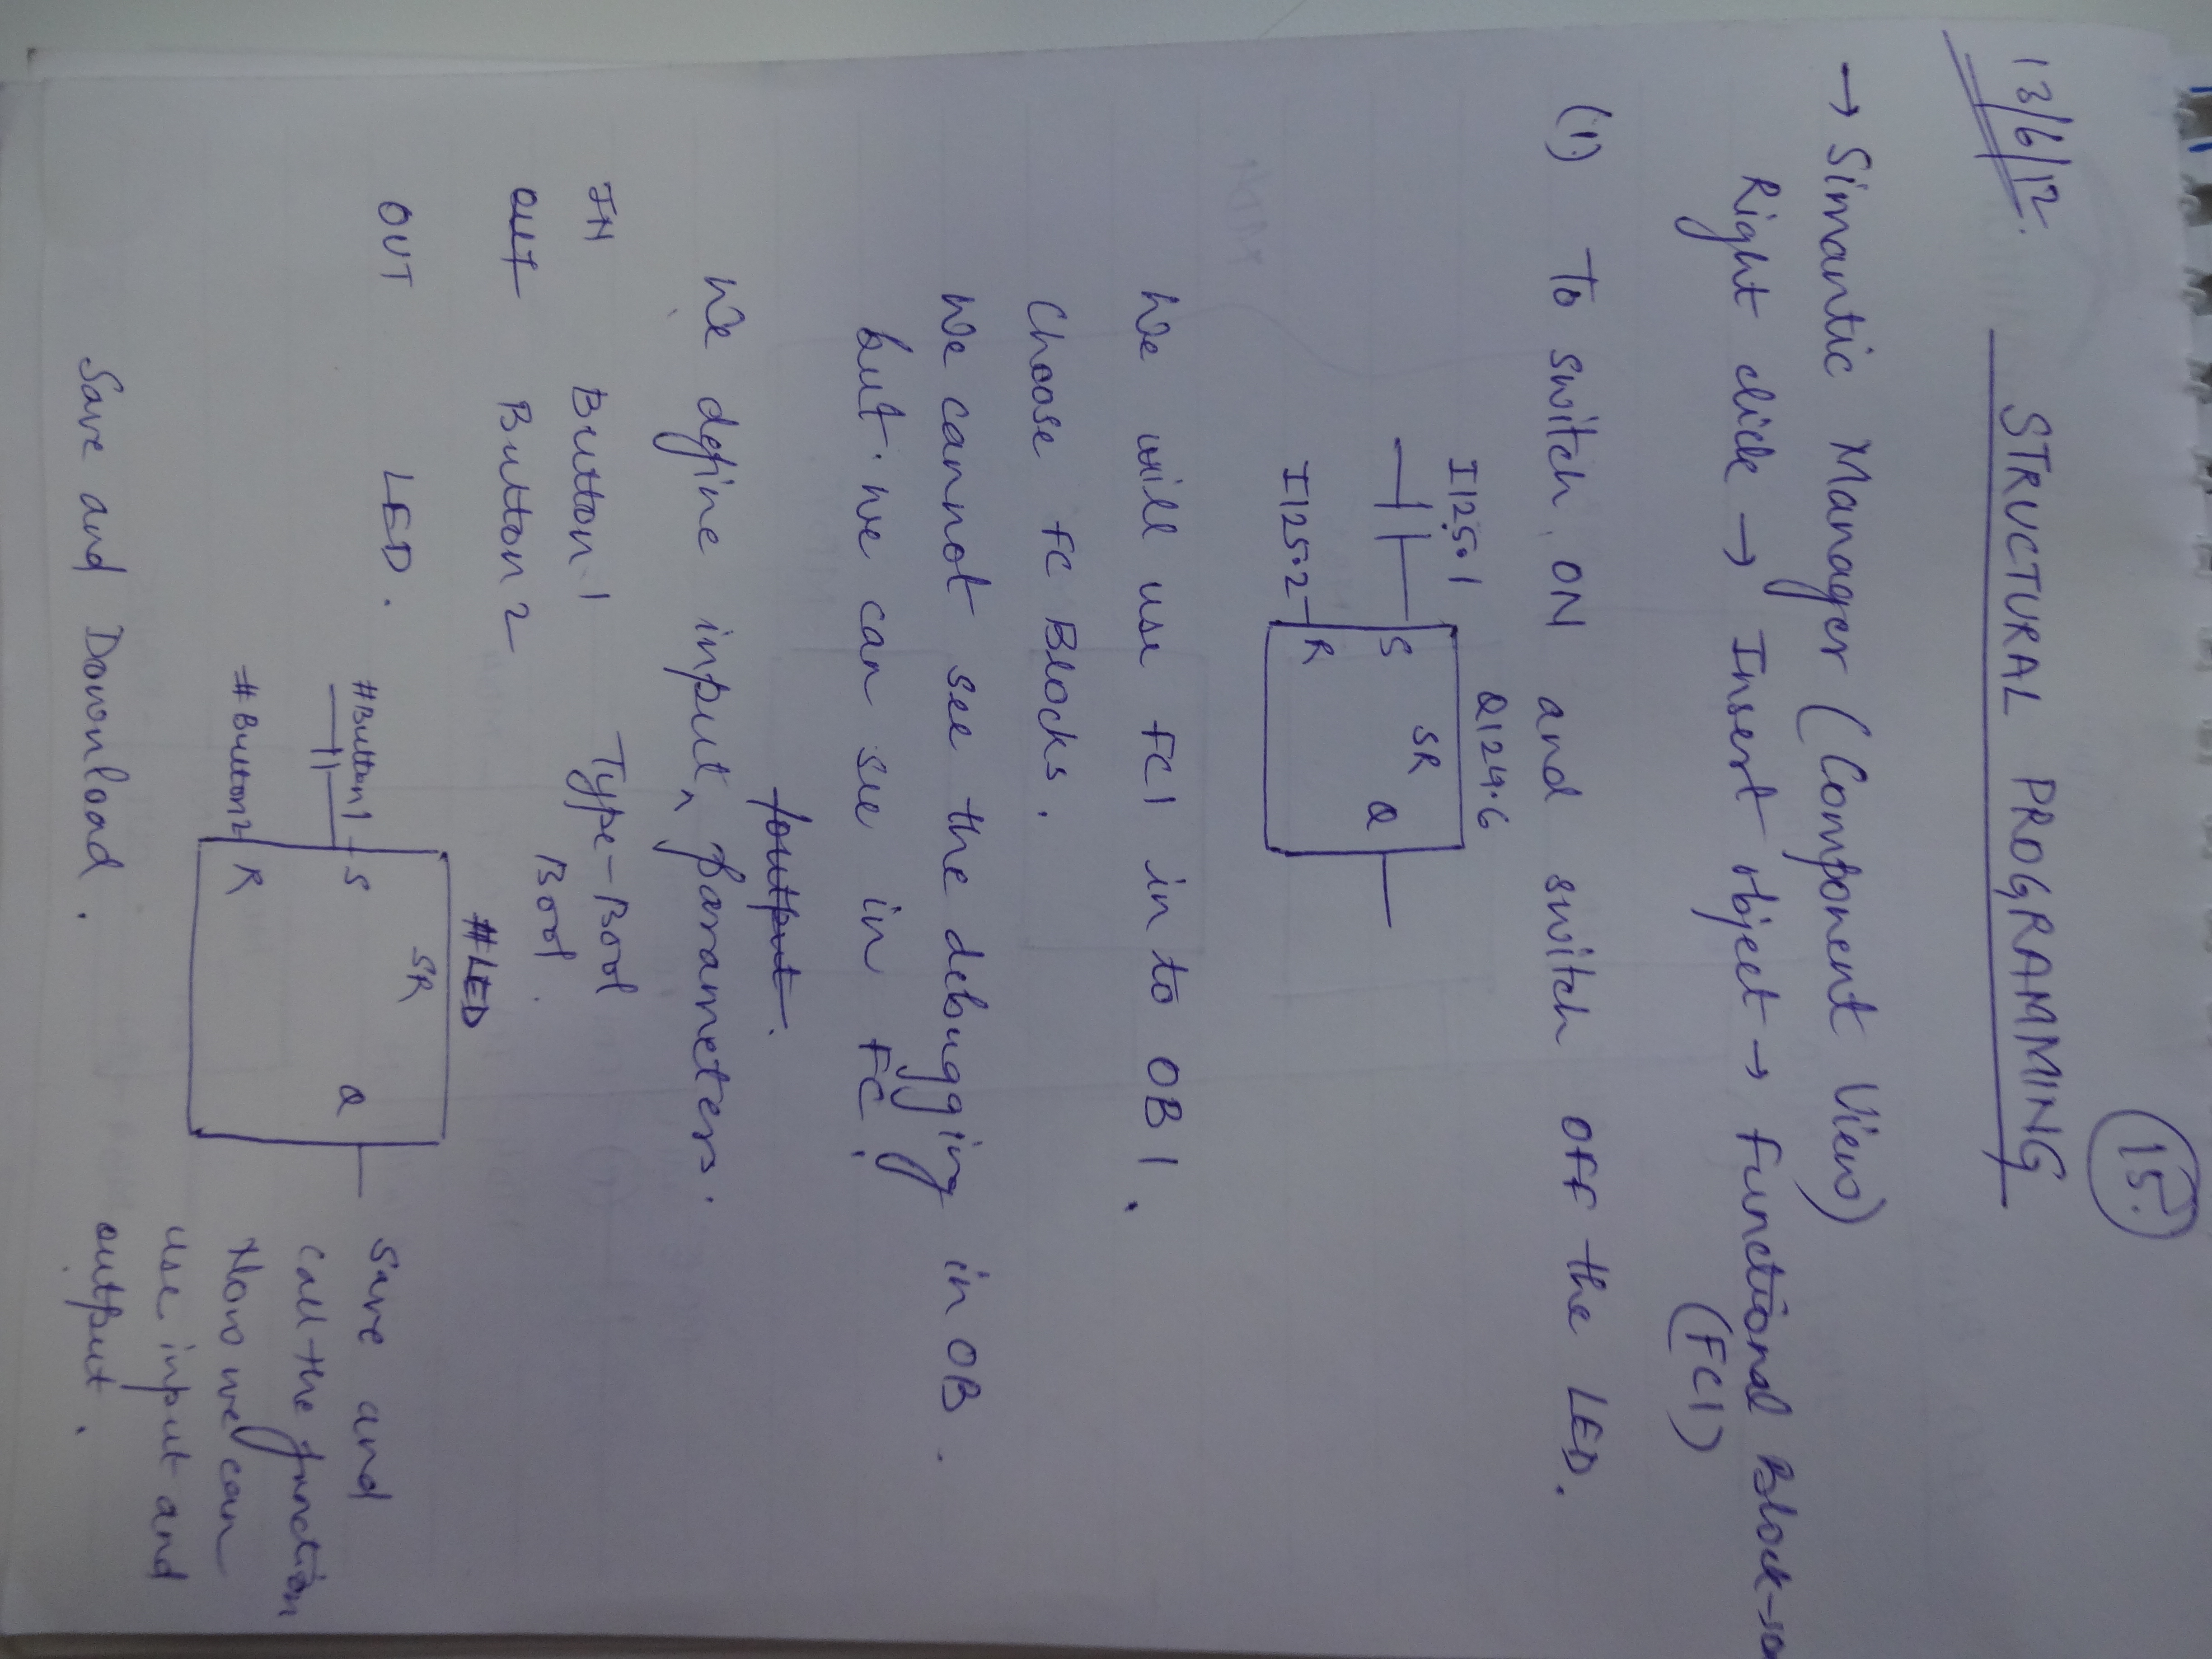 15.
13/6/12. STRUCTURAL PROGRAMMING
→ Simantic Manager (Component View)
Right click → Insert object → Functional Block →
(FC1)
(1) To switch ON and switch OFF the LED.
I125.1 Q124.6
S SR Q
I125.2 R
We will use FC1 in to OB1.
Choose FC Blocks.
We cannot see the debugging in OB.
but we can see in FC.
/output.
We define input, parameters.
IN Button 1 Type-Bool
OUT Button 2 Bool.
OUT LED.
#LED
#Button1 S SR Q
#Button2 R
Save and
call the function
Now we can
use input and
output.
Save and Download.